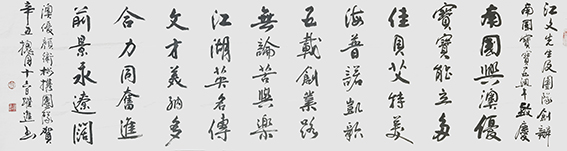 江文先生及團隊創辦
南國寶寶五週年致慶
南國興澳優
寶寶能立多
佳貝艾特美
海普諾凱歌
五載創業路
無論苦與樂
江湖英名傳
文才義納多
合力同奮進
前景永遼闊
澳優顏衛彬攜團隊賀
辛丑臘月十二日躍進書